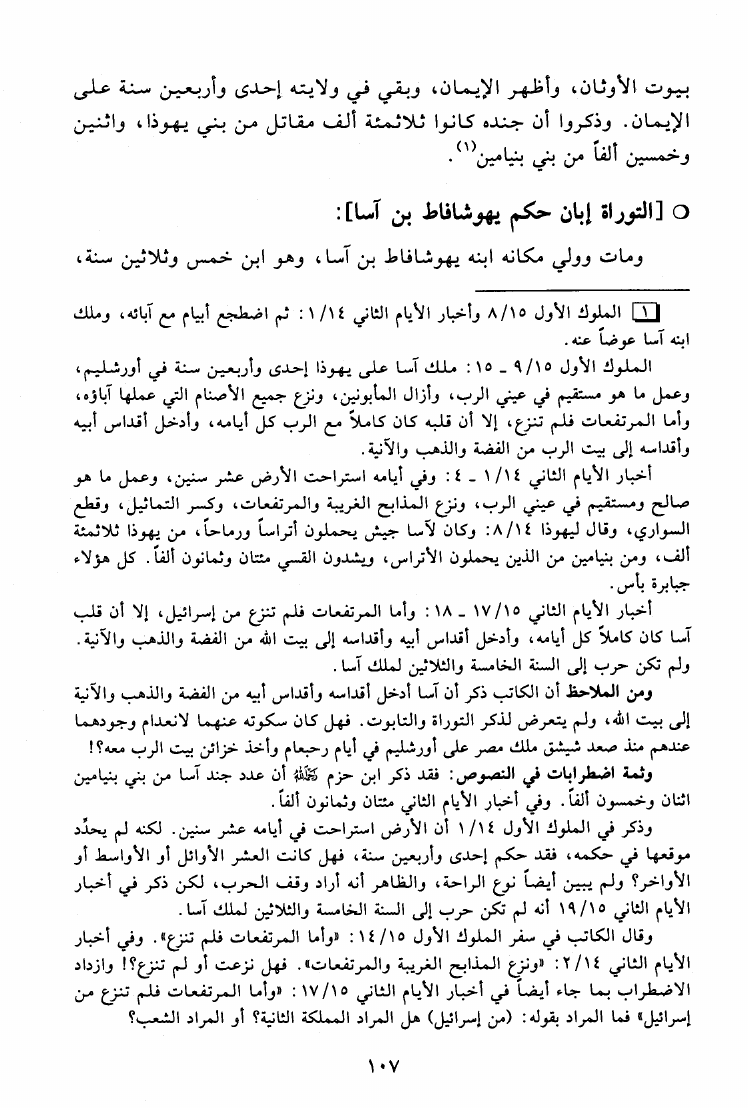 بيوت الأوثان، وأظهر الإيمان، وبقي في ولايته إحدى وأربعين سنة على
الإيمان. وذكروا أن جنده كانوا ثلاثمئة ألف مقاتل من بني يهوذا، واثنين
وخمسين ألفاً من بني بنيامين(١).
○ [التوراة إبان حكم يهوشافاط بن آسا]:
ومات وولي مكانه ابنه يهوشافاط بن آسا، وهو ابن خمس وثلاثين سنة،
[١] الملوك الأول ٨/١٥ وأخبار الأيام الثاني ١/١٤: ثم اضطجع أبيام مع آبائه، وملك
ابنه آسا عوضاً عنه.
الملوك الأول ٩/١٥ ـ ١٥: ملك آسا على يهوذا إحدى وأربعين سنة في أورشليم،
وعمل ما هو مستقيم في عيني الرب، وأزال المأبونين، ونزع جميع الأصنام التي عملها آباؤه،
وأما المرتفعات فلم تنزع، إلا أن قلبه كان كاملاً مع الرب كل أيامه، وأدخل أقداس أبيه
وأقداسه إلى بيت الرب من الفضة والذهب والآنية.
أخبار الأيام الثاني ١/١٤ ـ ٤: وفي أيامه استراحت الأرض عشر سنين، وعمل ما هو
صالح ومستقيم في عيني الرب، ونزع المذابح الغريبة والمرتفعات، وكسر التماثيل، وقطع
السواري، وقال ليهوذا ٨/١٤: وكان لآسا جيش يحملون أتراساً ورماحاً، من يهوذا ثلاثمئة
ألف، ومن بنيامين من الذين يحملون الأتراس، ويشدون القسي مئتان وثمانون ألفاً. كل هؤلاء
جبابرة بأس.
أخبار الأيام الثاني ١٧/١٥ ـ ١٨: وأما المرتفعات فلم تنزع من إسرائيل، إلا أن قلب
آسا كان كاملاً كل أيامه، وأدخل أقداس أبيه وأقداسه إلى بيت الله من الفضة والذهب والآنية.
ولم تكن حرب إلى السنة الخامسة والثلاثين لملك آسا.
ومن الملاحظ أن الكاتب ذكر أن آسا أدخل أقداسه وأقداس أبيه من الفضة والذهب والآنية
إلى بيت الله، ولم يتعرض لذكر التوراة والتابوت. فهل كان سكوته عنهما لانعدام وجودهما
عندهم منذ صعد شيشق ملك مصر على أورشليم في أيام رحبعام وأخذ خزائن بيت الرب معه؟!
وثمة اضطرابات في النصوص: فقد ذكر ابن حزم أن عدد جند آسا من بني بنيامين
اثنان وخمسون ألفاً. وفي أخبار الأيام الثاني مئتان وثمانون ألفاً.
وذكر في الملوك الأول ١/١٤ أن الأرض استراحت في أيامه عشر سنين. لكنه لم يحدِّد
موقعها في حكمه، فقد حكم إحدى وأربعين سنة، فهل كانت العشر الأوائل أو الأواسط أو
الأواخر؟ ولم يبين أيضاً نوع الراحة، والظاهر أنه أراد وقف الحرب، لكن ذكر في أخبار
الأيام الثاني ١٩/١٥ أنه لم تكن حرب إلى السنة الخامسة والثلاثين لملك آسا.
وقال الكاتب في سفر الملوك الأول ١٤/١٥: «وأما المرتفعات فلم تنزع». وفي أخبار
الأيام الثاني ٢/١٤: «ونزع المذابح الغريبة والمرتفعات». فهل نزعت أو لم تنزع؟! وازداد
الاضطراب بما جاء أيضاً في أخبار الأيام الثاني ١٧/١٥: «وأما المرتفعات فلم تنزع من
إسرائيل» فما المراد بقوله: (من إسرائيل) هل المراد المملكة الثانية؟ أو المراد الشعب؟
١٠٧